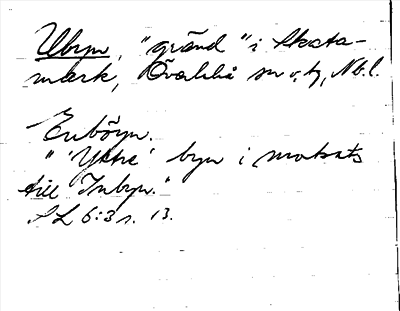 Utbyn, "gränd" i Skata-
mark, Överluleå sn o. tg, Nb. l.
Enbõyn.
"'Yttre' byn i motsats
till Inbyn."
SL 6:3 s. 13.